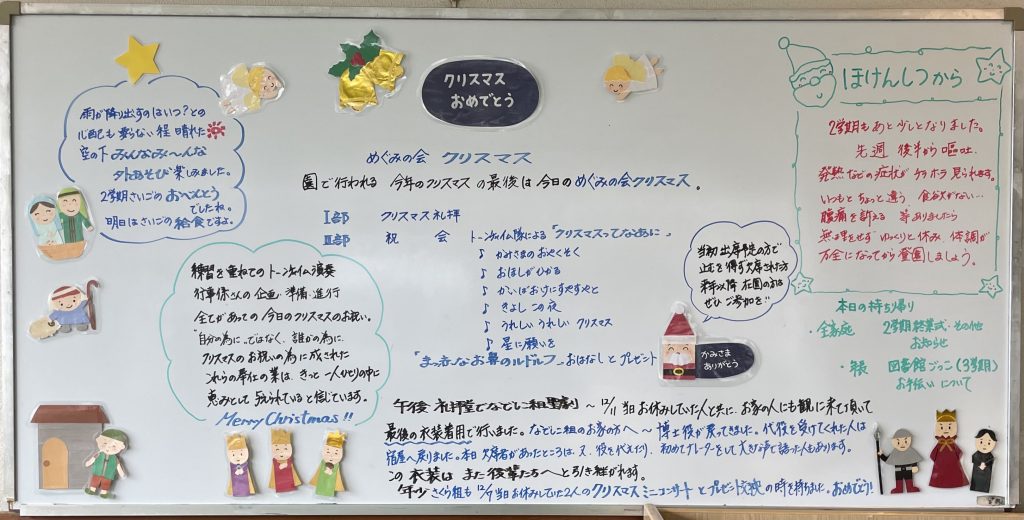 クリスマス
おめでとう
雨が降り出すのはいつ?との
心配も要らない程 晴れた
空の下 みんなみ〜んな
外あそび楽しみました。
2学期さいごのおべんとう
でしたね。
明日はさいごの給食ですよ。
めぐみの会 クリスマス
園で行われる 今年のクリスマスの最後は今日のめぐみの会クリスマス。
Ⅰ部 クリスマス礼拝
Ⅱ部 祝会 トーンチャイム隊による「クリスマスってなあに」
♪ かみさまのおやくそく
♪ おほしがひかる
♪ かいばおけにすやすやと
♪ きよしこの夜
♪ うれしいうれしい クリスマス
♪ 星に願いを
「まっ赤なお鼻のルドルフ」おはなしとプレゼント
練習を重ねてのトーンチャイム演奏
行事係さんの企画・準備・進行
全てがあっての今日のクリスマスのお祝い。
"自分の為に"ではなく、誰かの為に、
クリスマスのお祝いの為に成された
これらの奉仕の業は、きっと一人ひとりの中に
恵みとして与えられていると信じています。
Merry Christmas!!
当初出席予定の方で
止むを得ず欠席された方
来年以降 在園の方は
ぜひご参加を!!
かみさま
ありがとう
ほけんしつから
2学期もあと少しとなりました。
先週後半から嘔吐、
発熱などの症状がチラホラ見られます。
いつもとちょっと違う、食欲がない…
腹痛を訴える 等ありましたら
無理をせず ゆっくりと休み、体調が
万全になってから登園しましょう。
本日の持ち帰り
・全家庭 2学期終業式・その他
お知らせ
・年長 図書館ごっこ(3学期)
お手伝いについて
午後 礼拝堂でなでしこ組聖劇 〜 12/11 当日お休みしていた人と共に、お家の人にも観に来て頂いて
最後の衣装着用で行いました。なでしこ組のお家の方へ〜 博士役が戻ってきました。代役を受けてくれた人は
宿屋へ戻りました。本日 欠席者があったところは、又、役を代えたり、初めてナレーターをして大きな声で語った人もあります。
この衣装は また後輩たちへと引き継がれます。
年少 さくら組も 12/7 当日お休みしていた2人のクリスマスミニコンサートとプレゼント交換の時を持ちました。おめでとう!